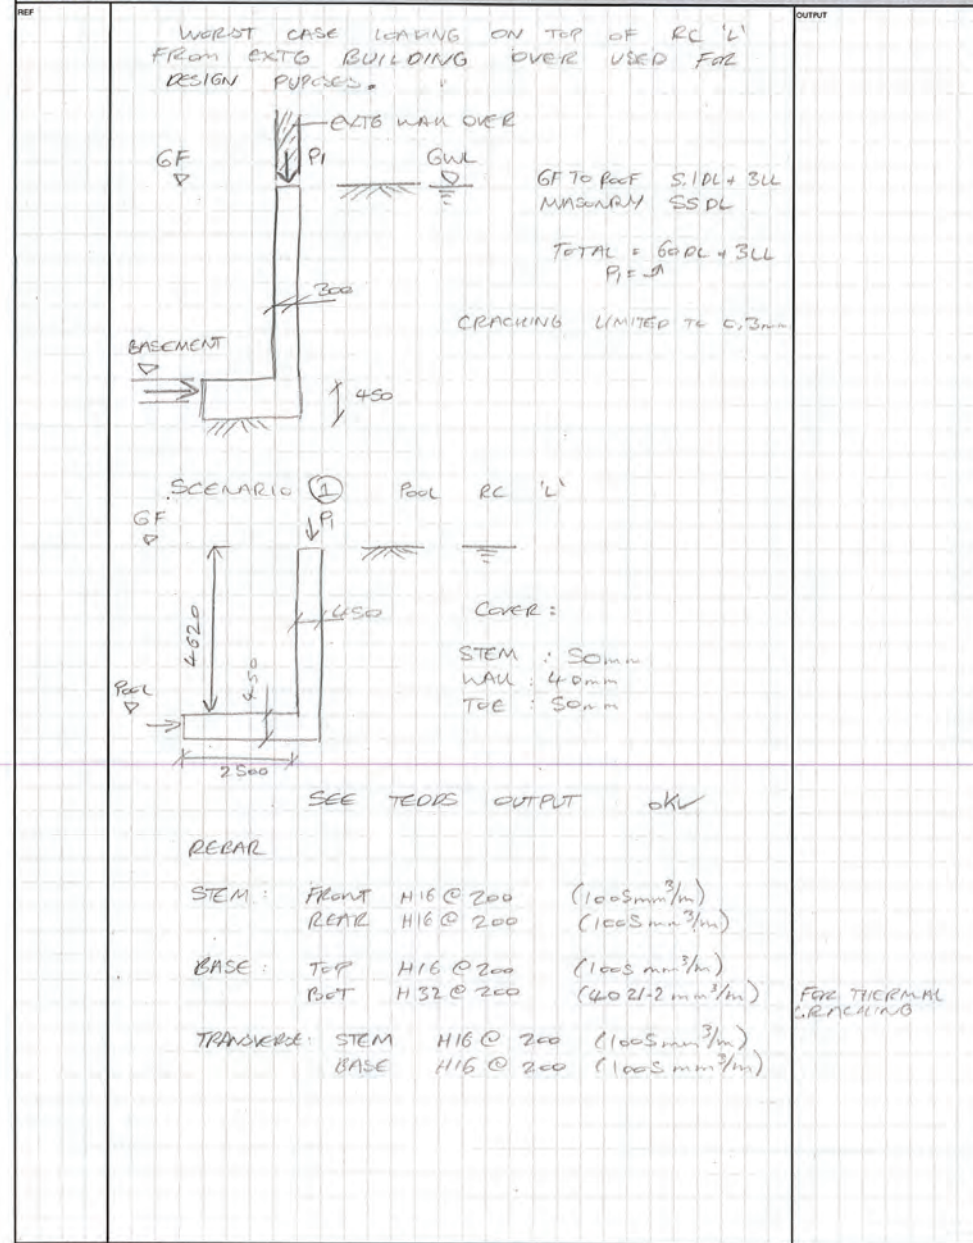 REF
OUTPUT
WORST CASE LOADING ON TOP OF RC 'L'
FROM EXTG BUILDING OVER USED FOR
DESIGN PUPOSES.
EXTG WALL OVER
GF
P1
GWL
GF TO ROOF 5.1DL + 3LL
MASONRY 55DL
TOTAL = 60DL + 3LL
P1 =
300
CRACKING LIMITED TO 0.3mm
BASEMENT
450
SCENARIO 1 POOL RC 'L'
GF
P1
4620
450
450
COVER :
STEM : 50mm
WALL : 40mm
TOE : 50mm
POOL
2500
SEE TEDDS OUTPUT OK
REBAR
STEM : FRONT H16 @ 200 (1005mm³/m)
REAR H16 @ 200 (1005mm³/m)
BASE : TOP H16 @ 200 (1005 mm³/m)
BOT H32 @ 200 (4021.2 mm³/m)
FOR THERMAL
CRACKING
TRANSVERSE: STEM H16 @ 200 (1005mm³/m)
BASE H16 @ 200 (1005mm³/m)